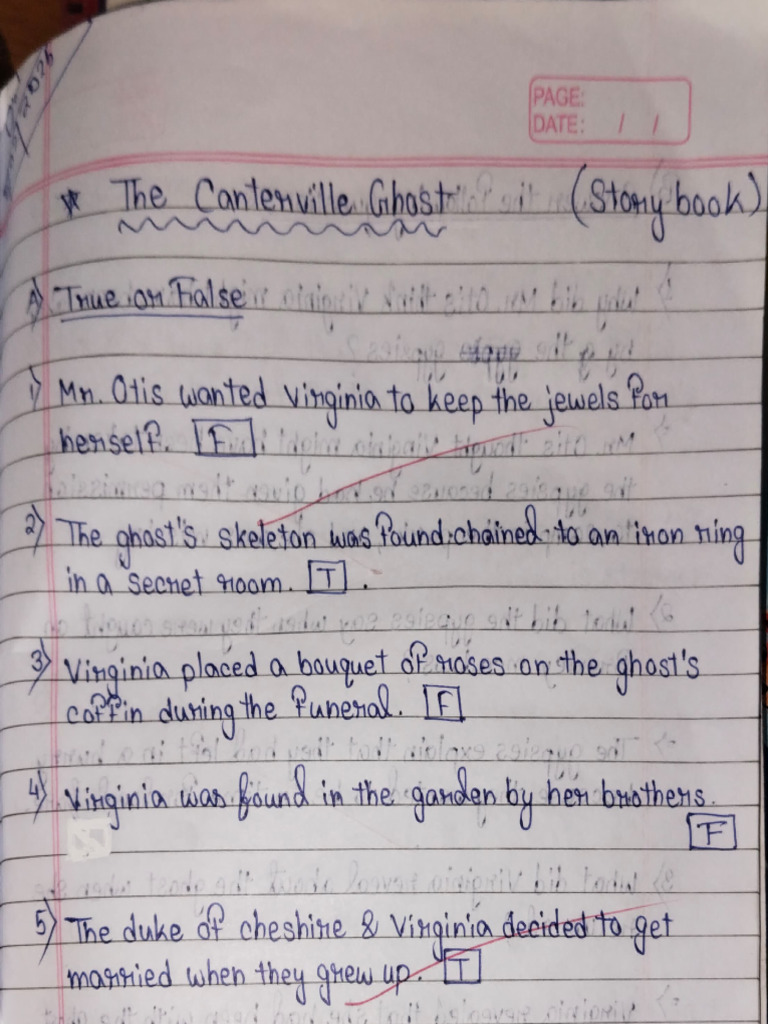 PAGE:
DATE: / /
* The Canterville Ghost (Story book)
A) True or False
1) Mr. Otis wanted Virginia to keep the jewels for
herself. F
2) The ghost's skeleton was found chained to an iron ring
in a secret room. T .
3) Virginia placed a bouquet of roses on the ghost's
coffin during the funeral. F
4) Virginia was found in the garden by her brothers.
F
5) The duke of cheshire & Virginia decided to get
married when they grew up. T